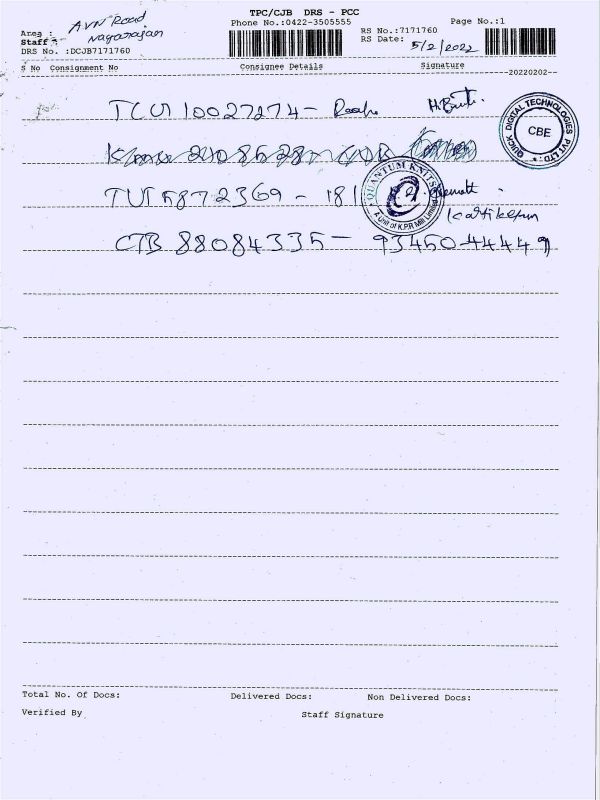 TPC/CJB DRS - PCC
Phone No.:0422-3505555
Page No.:1
Area : AVN Road
Staff : Nagarajan
DRS No. :DCJB7171760
RS No.:7171760
RS Date: 5/2/2022
S No Consignment No Consignee Details Signature
--20220202--
TCU 10027274 -
QUICK DIGITAL TECHNOLOGIES PVT LTD.
CBE
TUT 5872369 - 181
QUANTUM KNITS
A Unit of K.P.R Mill Limited
Kartikeyan
CTB 88084335 - 9345044449
Total No. Of Docs: Delivered Docs: Non Delivered Docs:
Verified By Staff Signature